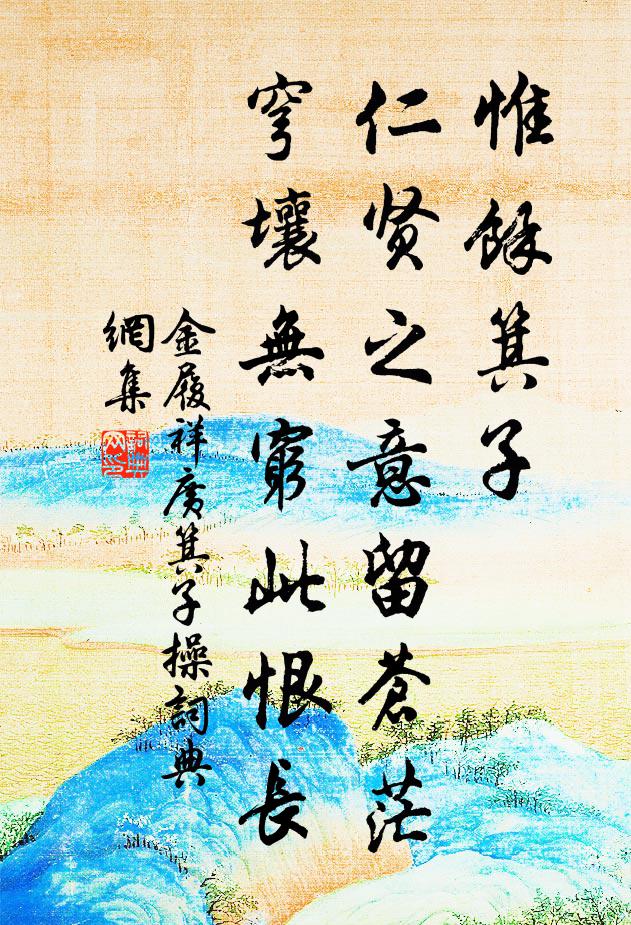 惟餘箕子
仁贤之意留蒼茫
穹壤無窮此恨長
金履祥廣箕子操詞典
網集